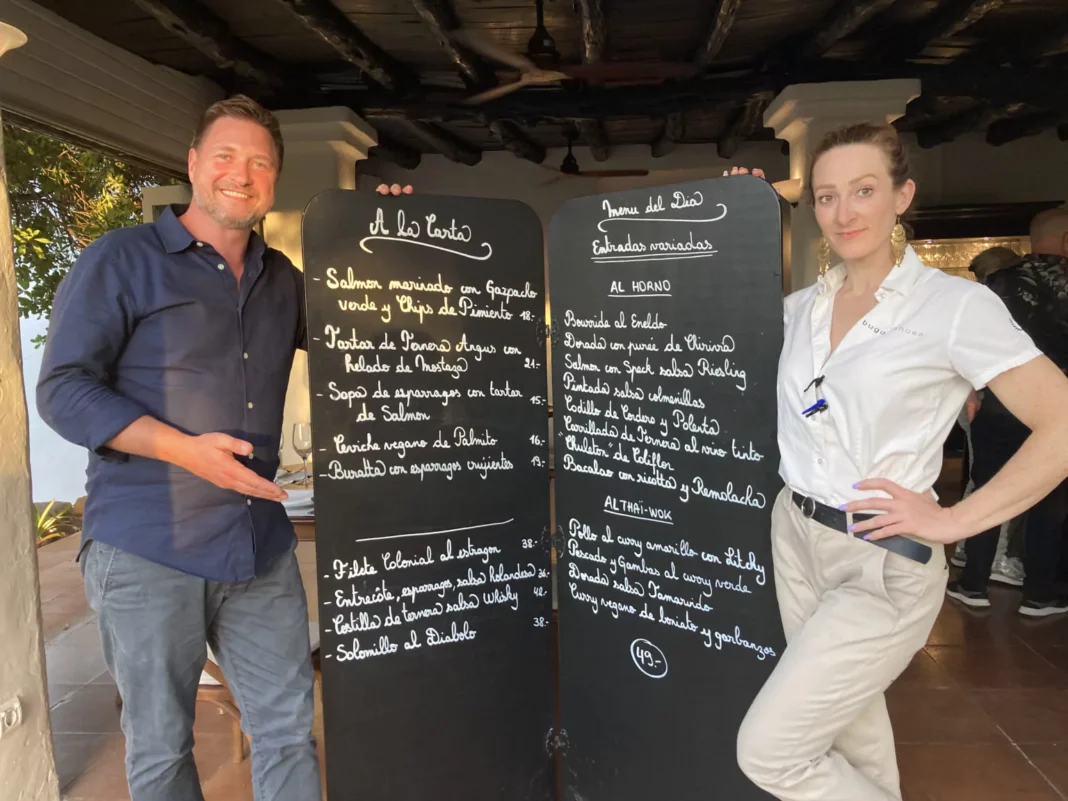 A la Carta
- Salmon marinado con Gazpacho
verde y Chips de Pimiento 18.-
- Tartar de Ternera Angus con
helado de Mostaza 21.-
- Sopa de esparragos con tartar
de Salmon 15.-
- Ceviche vegano de Palmito 16.-
- Buratta con esparragos crujientes 19.-
- Filete Colonial al estragon 38.-
- Entrecôte, esparragos, salsa holandesa 36.-
- Costilla de ternera salsa Whisky 42.-
- Solomillo al Diabolo 38.-
Menu del Dia
Entradas variadas
AL HORNO
Bourride al Eneldo
Dorada con purée de Chirivia
Salmon con Speck salsa Riesling
Pintada salsa colmenillas
Costillo de Cordero y Polenta
Carrillada de Ternera al vino tinto
"Chuleton" de Coliflor
Bacalao con ricotta y Remolacha
AL THAÏ-WOK
Pollo al curry amarillo con Litchy
Pescado y Gambas al curry verde
Dorada salsa Tamarindo
Curry vegano de boniato y garbanzos
49.-